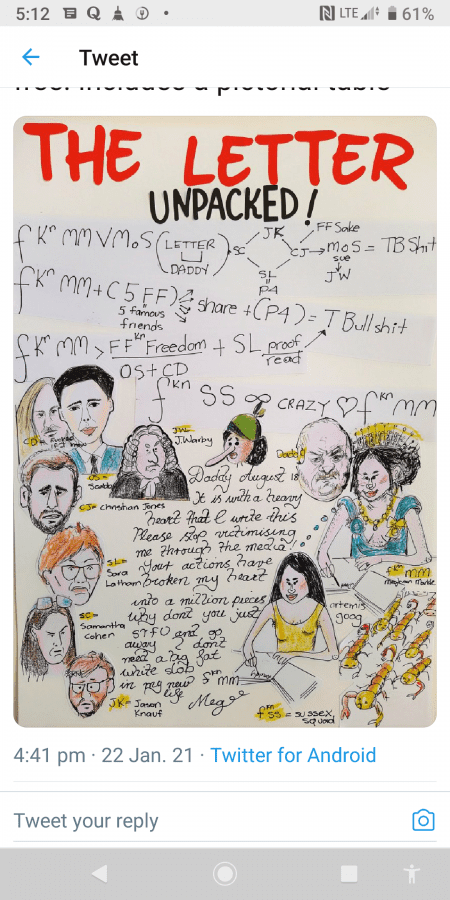 5:12
LTE
61%
Tweet
THE LETTER
UNPACKED!
JK
FF Sake
fkn MM V MoS (LETTER
DADDY)
SC
CJ → MoS = TB Shit
sue
JW
SL
P4
fkn MM + (5 FF)
5 famous
friends
share + (P4) = T Bullshit
fkn MM > FFkn Freedom + SL proof
read
OS + CD
fkn SS ∞ CRAZY ♡ fkn MM
CD =
OS =
Scobie
JW =
J. Warby
Daddy
CJ = Christian Jones
SL =
Sara
Latham
SC =
Samantha
Cohen
JK = Jason
Knauf
Daddy August 18
It is with a heavy
heart that I write this
Please stop victimising
me through the media
Your actions have
broken my heart
into a million pieces
why dont you just
STFU and go
away I dont
need a big fat
white slob
in my new
life
Meg
fkn MM
Meghan Markle
f SS = SUSSEX
SQUAD
4:41 pm · 22 Jan. 21 · Twitter for Android
Tweet your reply